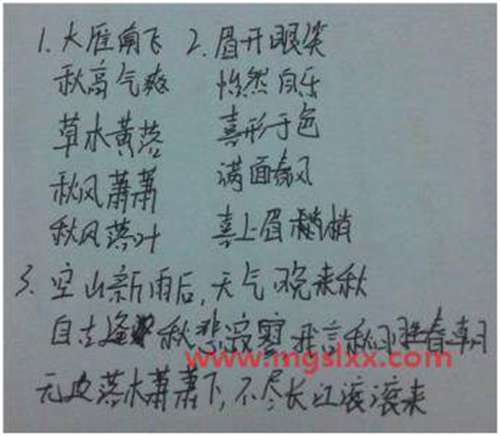 1. 大雁南飞 2. 眉开眼笑
秋高气爽 怡然自乐
草木黄落 喜形于色
秋风萧萧 满面春风
秋风落叶 喜上眉梢
3. 空山新雨后,天气晚来秋
自古逢秋悲寂寥 我言秋日胜春
www.mgslxx.com
无边落木萧萧下,不尽长江滚滚来